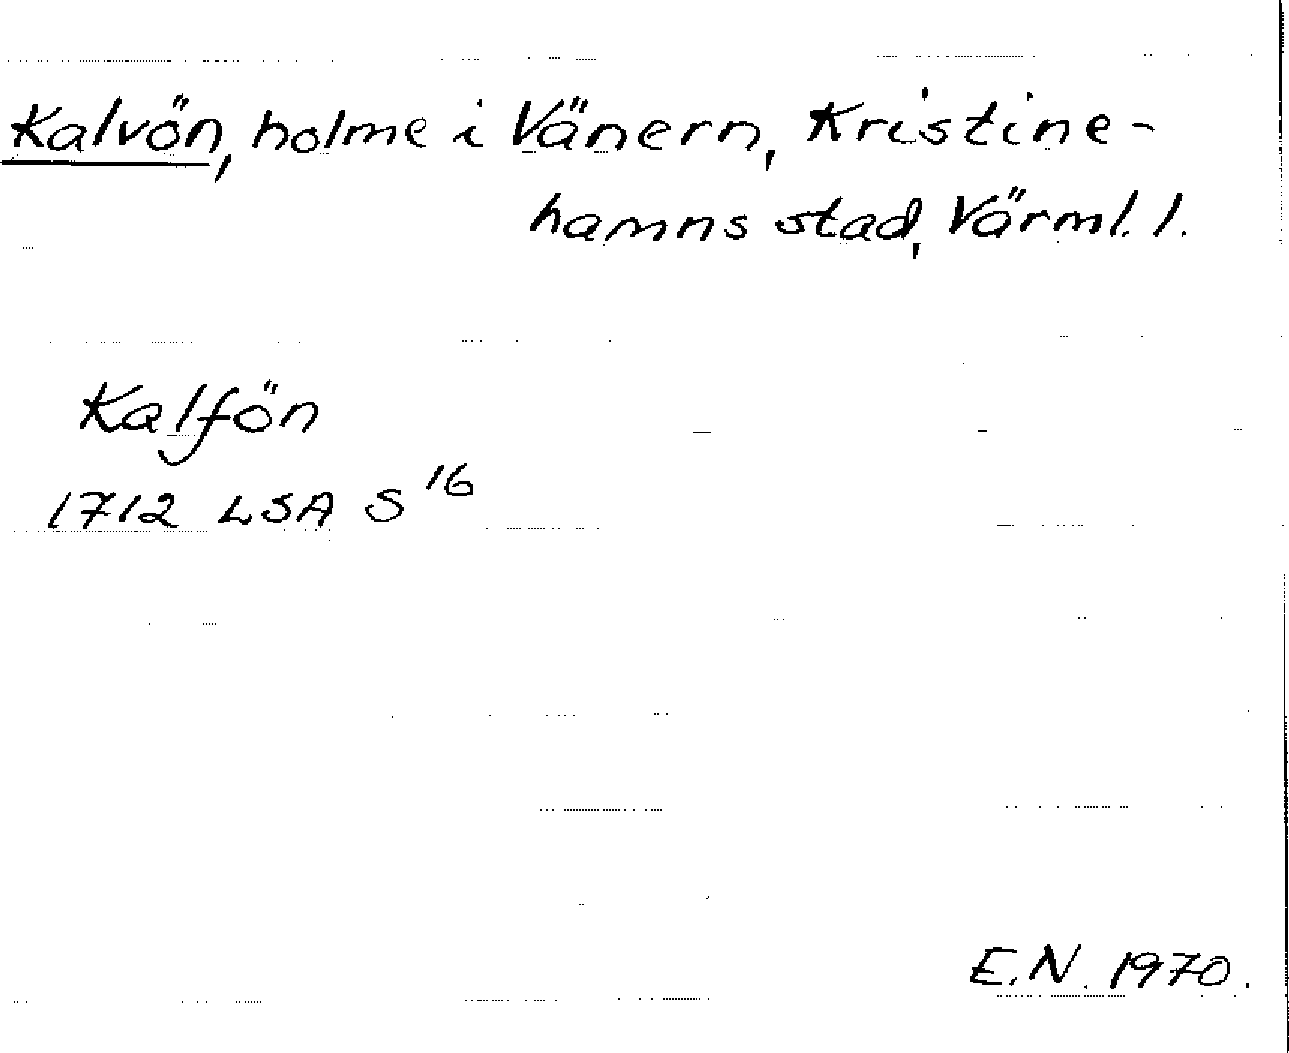 Kalvön, holme i Vänern, Kristine-
hamns stad, Värml. l.
Kalfön
1712 LSA S 16
E.N. 1970.